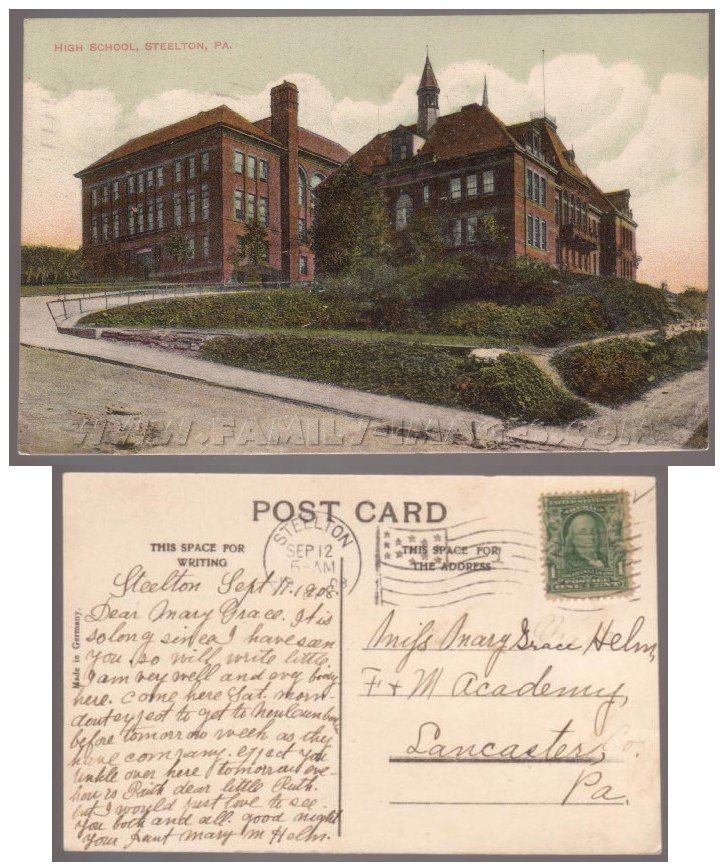 HIGH SCHOOL, STEELTON, PA.
WWW.FAMILY-IMAGES.COM
POST CARD
THIS SPACE FOR
WRITING
THIS SPACE FOR
THE ADDRESS
STEELTON
SEP 12
6-AM
08
UNITED STATES OF AMERICA
POSTAGE
ONE CENT
Made in Germany.
Steelton Sept 11. 1908.
Dear Mary Grace. It is
so long since I have seen
You. so will write little.
I am very well and evy body
here. Come here Sat. morn
dont expect to get to
before tomorrow week as they
have company. expect You
unkle over here tomorrow eve-
how is Ruth dear little Ruth.
but I would just love to see.
You both and all. good night
Your Aunt Mary M Helm.
Miss Mary Grace Helm,
F + M Academy,
Lancaster, Co.
Pa.